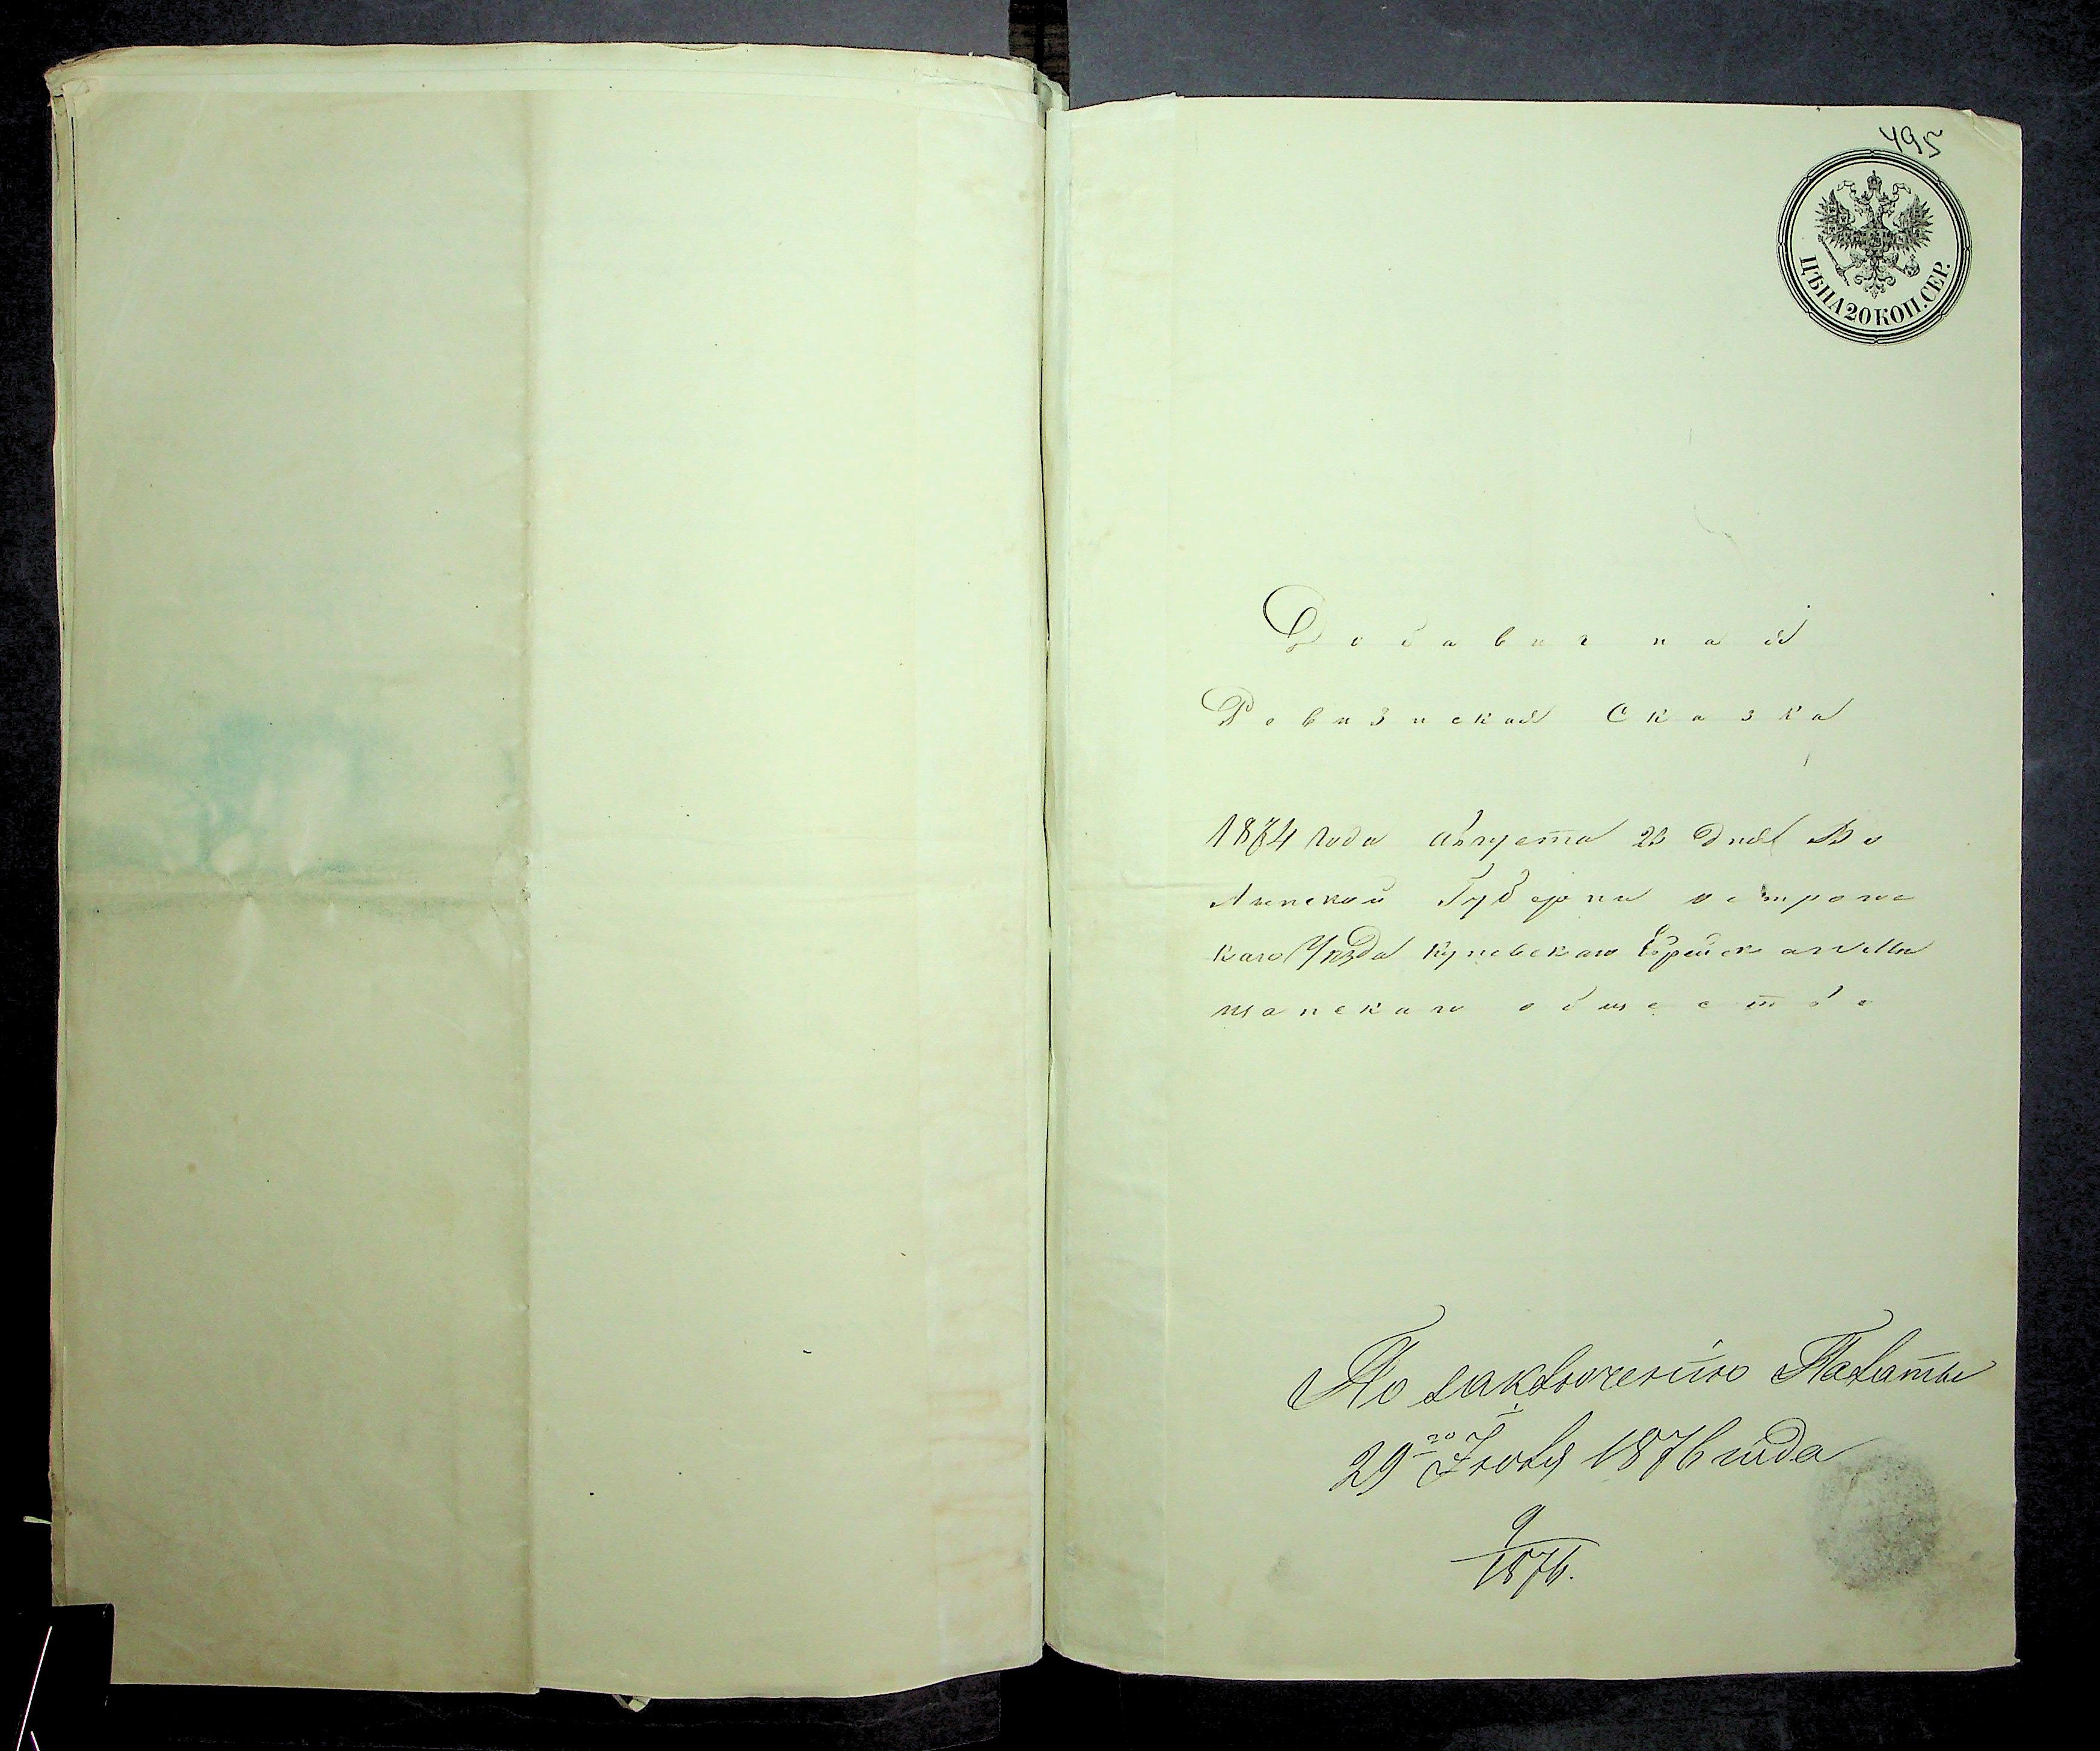 495
ЦѢНА 20 КОП. СЕР.
Добавичная
Ревизиская Сказка
1874 года августа 23 дня Во
Линской Губерни острожс
каго Уѣзда Куневскаго Еврейскаго Мѣ
щанскаго обшества
По заключенію Палаты
29го Іюля 1876 года
9/1876.